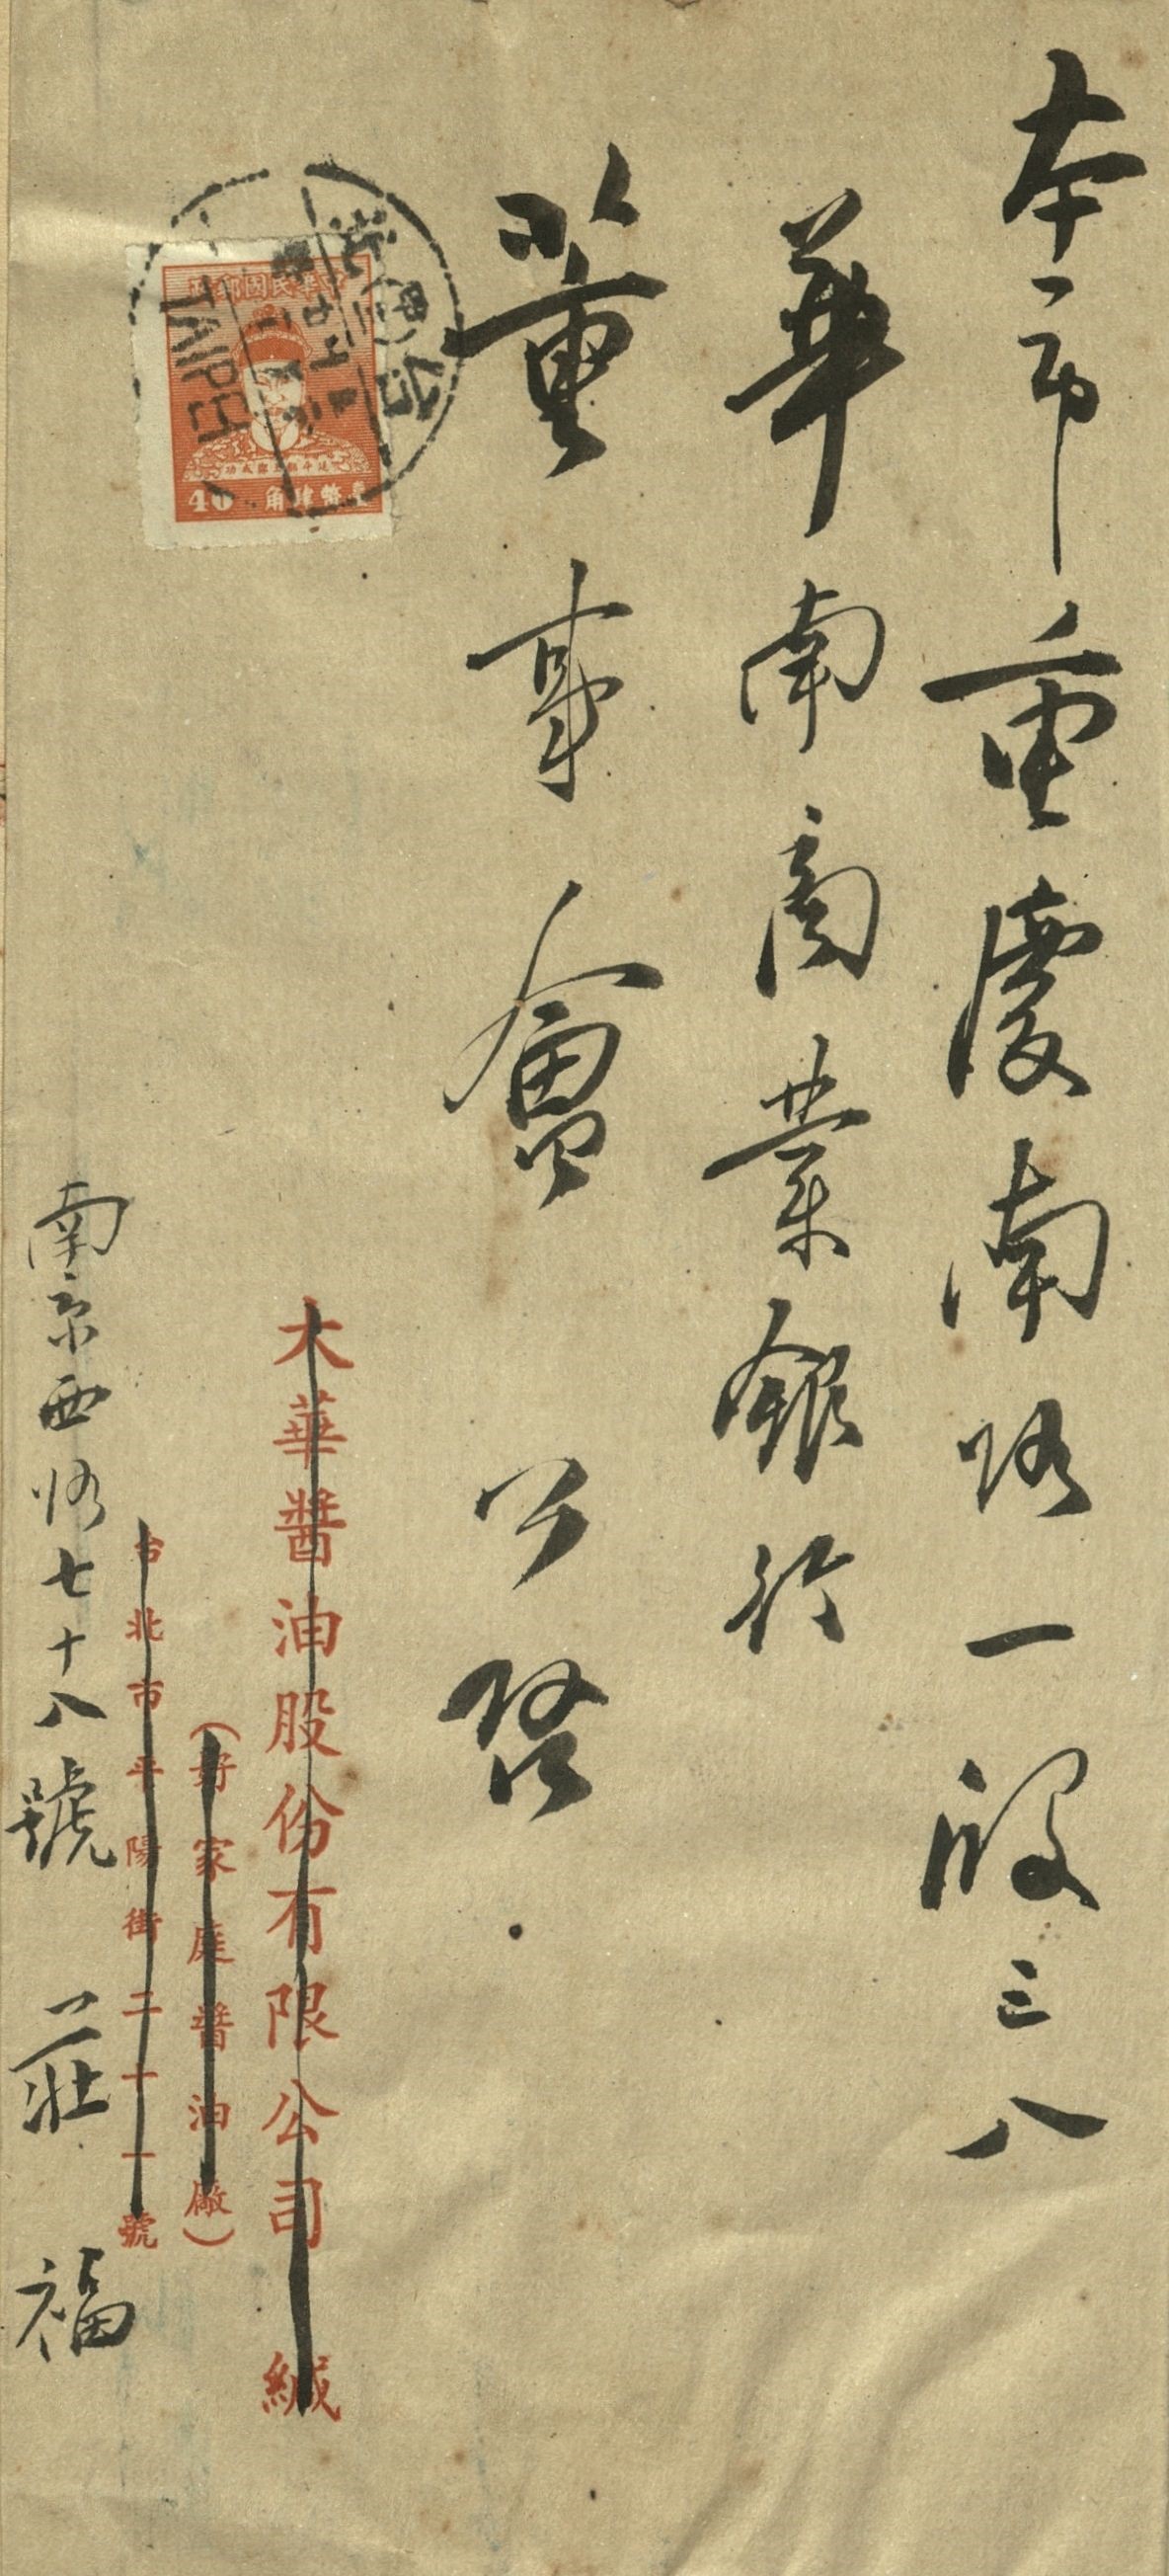 本市重慶南路一段三八
華南商業銀行
董事會 公啓
大華醬油股份有限公司 緘
(好家庭醬油廠)
台北市平陽街二十一號
南京西路七十八號 莊福
中華民國郵政
延平郡王鄭成功
40 臺幣肆角
台北
TAIPEI